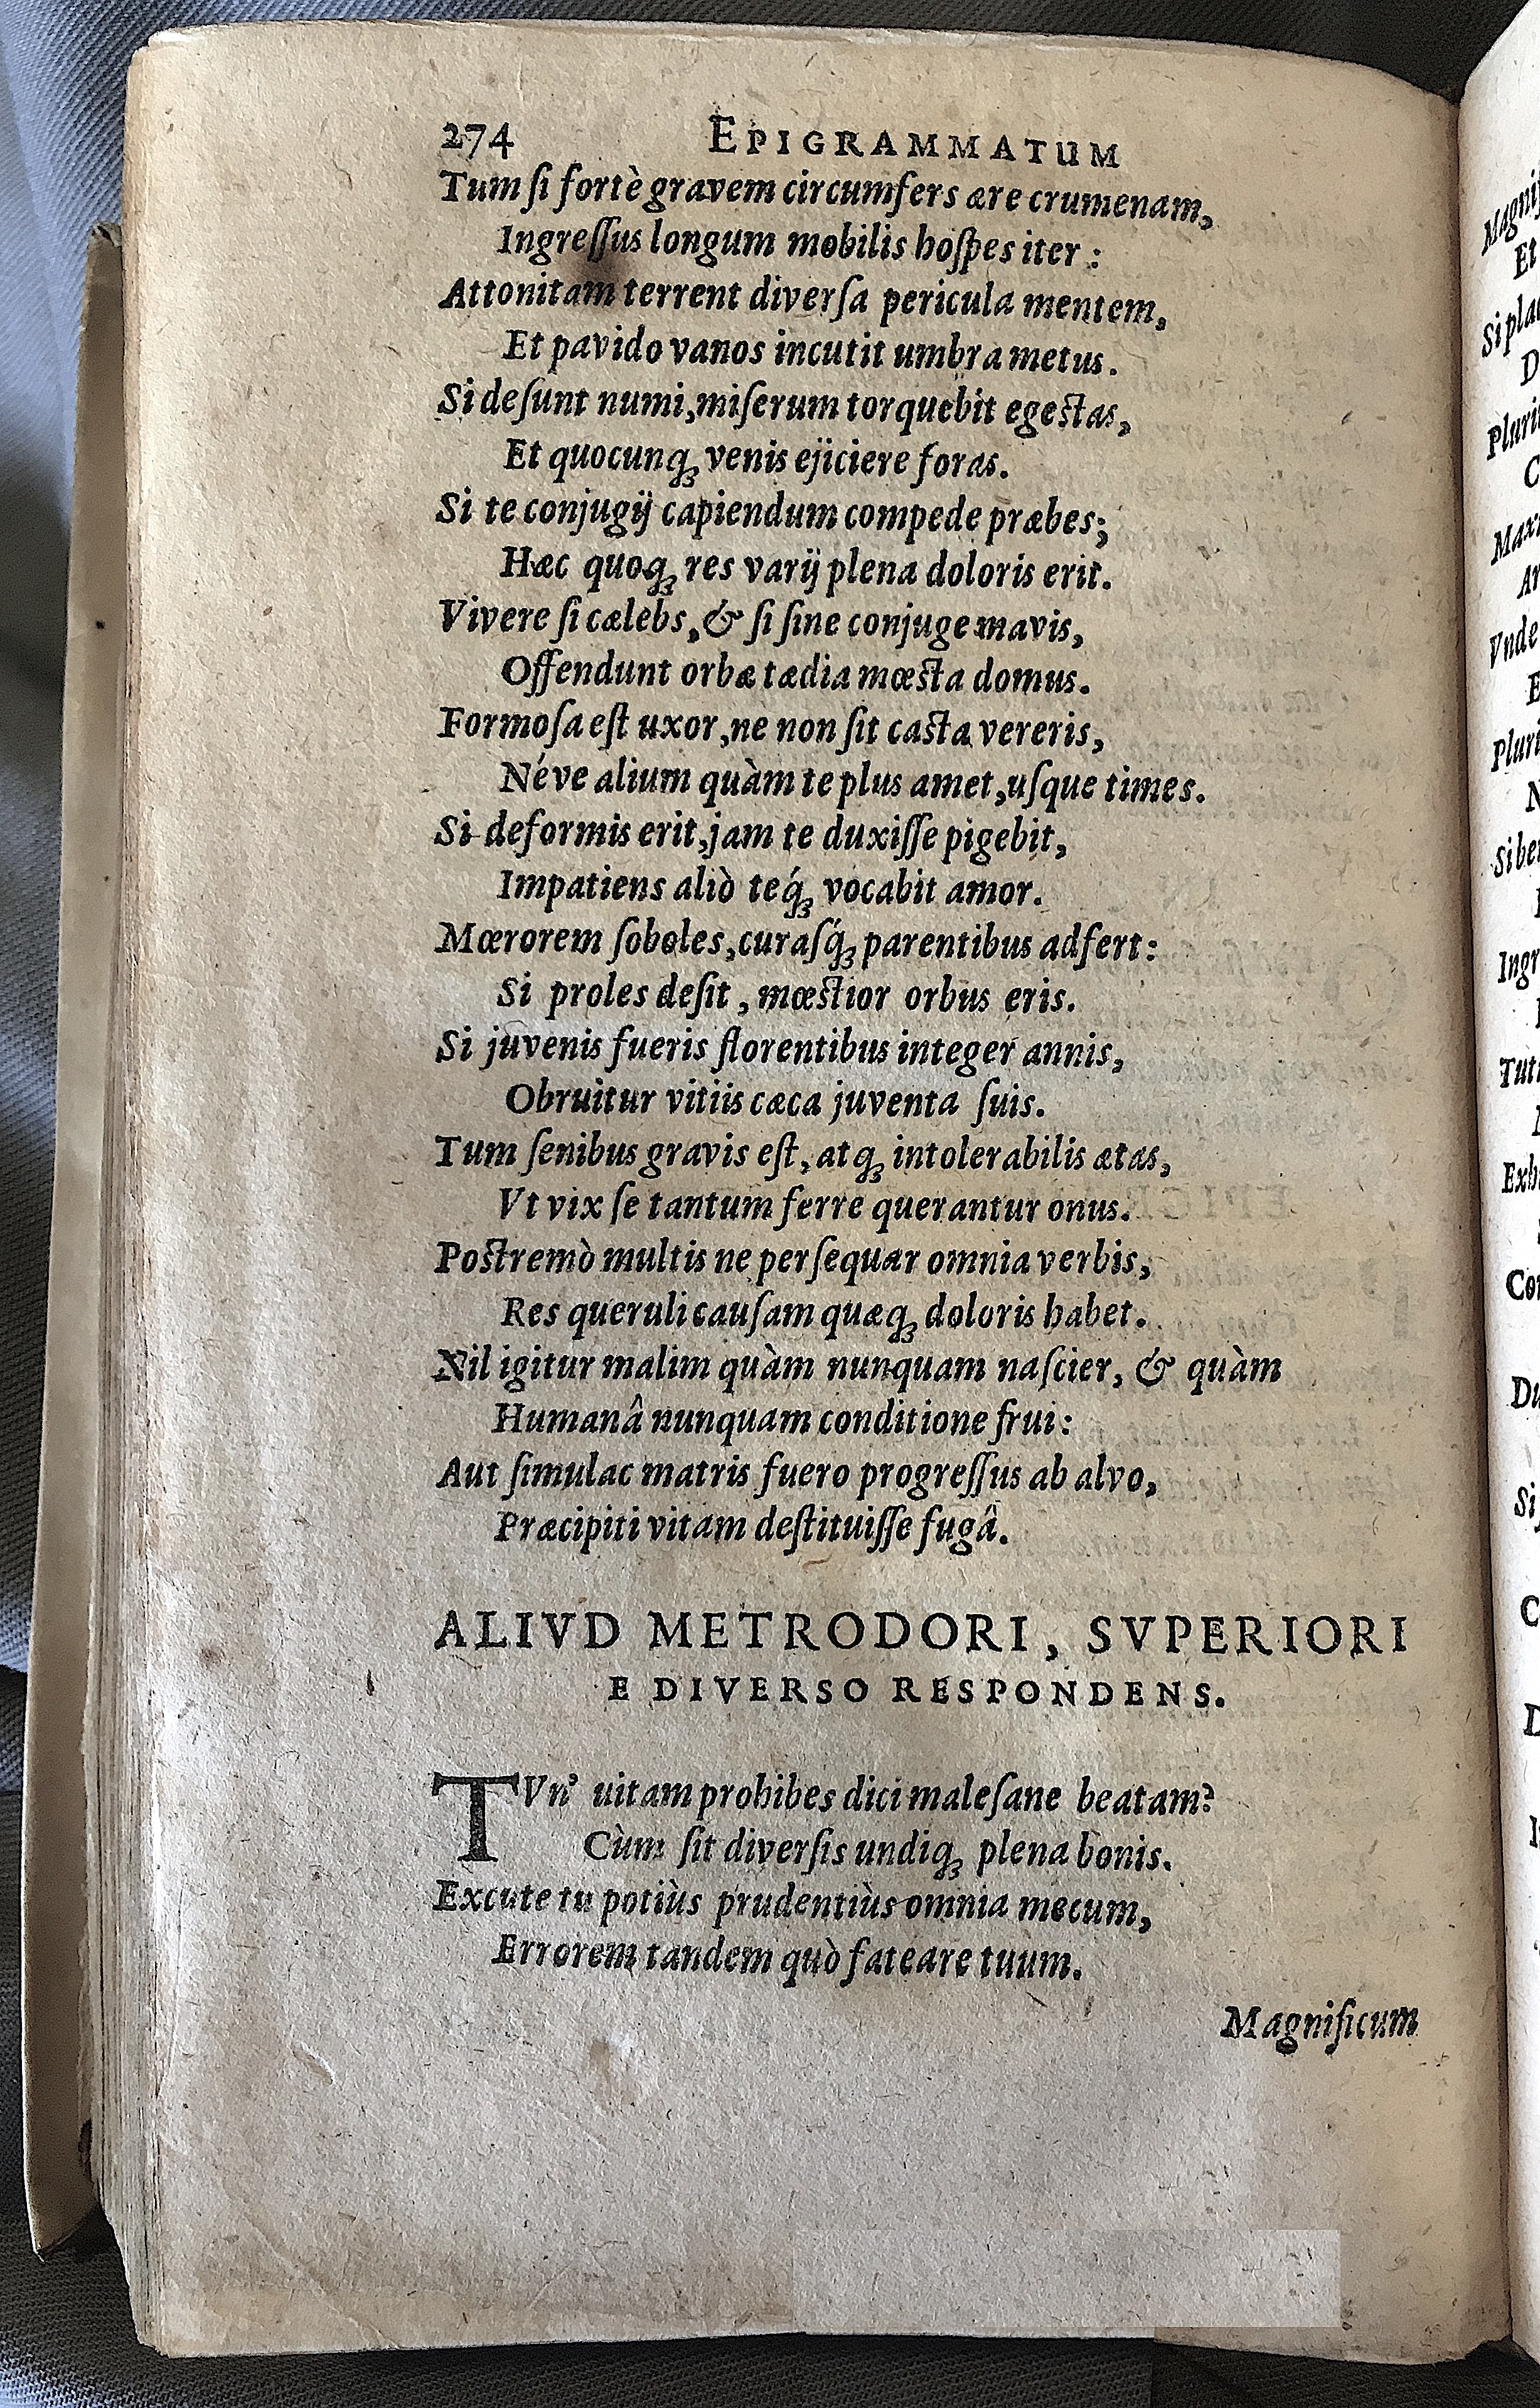 274 EPIGRAMMATUM
Tum ſi fortè gravem circumfers ære crumenam,
Ingreſſus longum mobilis hoſpes iter :
Attonitam terrent diverſa pericula mentem,
Et pavido vanos incutit umbra metus.
Si deſunt numi, miſerum torquebit egeſtas,
Et quocunq; venis ejiciere foras.
Si te conjugij capiendum compede præbes;
Hæc quoq; res varij plena doloris erit.
Vivere ſi cælebs, & ſi ſine conjuge mavis,
Offendunt orbæ tædia mœſta domus.
Formoſa eſt uxor, ne non ſit caſta vereris,
Néve alium quàm te plus amet, uſque times.
Si deformis erit, jam te duxiſſe pigebit,
Impatiens aliò teq́; vocabit amor.
Mœrorem ſoboles, curaſq́; parentibus adfert:
Si proles deſit, mœſtior orbus eris.
Si juvenis fueris florentibus integer annis,
Obruitur vitiis cæca juventa ſuis.
Tum ſenibus gravis eſt, atq; intolerabilis ætas,
Vt vix ſe tantum ferre querantur onus.
Poſtremò multis ne perſequar omnia verbis,
Res queruli cauſam quæq; doloris habet.
Nil igitur malim quàm nunquam naſcier, & quàm
Humanâ nunquam conditione frui:
Aut ſimulac matris fuero progreſſus ab alvo,
Præcipiti vitam deſtituiſſe fugâ.
ALIVD METRODORI, SVPERIORI
E DIVERSO RESPONDENS.
TVn' uitam prohibes dici maleſane beatam?
Cùm ſit diverſis undiq; plena bonis.
Excute tu potiùs prudentiùs omnia mecum,
Errorem tandem quò fateare tuum.
Magnificum
Et
D
C
E
N